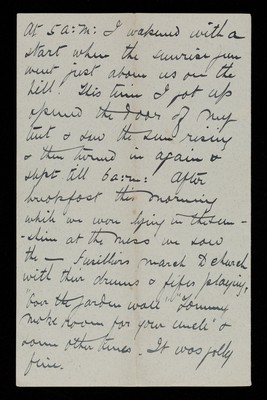 At 5 a:m: I wakened with a
start when the sunrise gun
went just above us on the
hill. This time I got up
opened the door of my
tent & saw the sun rising
& then turned in again &
slept till 6a:m: After
breakfast this morning
while we were lying in the sun-
-shine at the mess we saw
the — Fusiliers march to church
with their drums & fifes playing,
"Over the garden wall" "Tommy
make room for your uncle" &
some other tunes. It was jolly
fine.